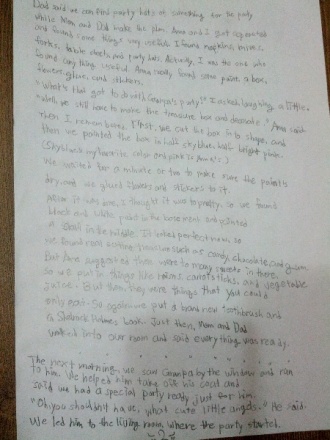 Dad said we can find party hats or something for the party
while Mom and Dad make the plan. Anna and I got separated
and found some things very useful. I found napkins, knives,
forks, table cloth, and party hats. Actually, I was the one who
found anything useful. Anna only found some paint, a box,
flowers, glue, and stickers.
"What's that got to do with Grandpa's party?" I asked laughing a little.
"Well, we still have to make the treasure box and decorate." Anna said.
Then I remembered. First, we cut the box into a shape, and
then we painted the box in half sky blue, half bright pink.
(Sky blue's my favorite color and pink is Anna's.)
We waited for a minute or two to make sure the paint is
dry and we glued flowers and stickers to it.
After it was done, I thought it was too pretty, so we found
black and white paint in the basement and painted
a skull in the middle. It looked perfect now, so
we found real eating treasure such as candy, chocolate, and gum.
But Anna suggested there were too many sweets in there.
So we put in things like raisins, carrot sticks, and vegetable
juice. But then they were things that you could
only eat. So again we put a brand new toothbrush and
a Sherlock Holmes book. Just then, Mom and Dad
walked into our room and said everything was ready.
The next morning, we saw Grandpa by the window and ran
to him. We helped him taking off his coat and
said we had a special party ready just for him.
"Oh, you shouldn't have, what cute little angels." He said.
We led him to the living room, where the party started.
~2~